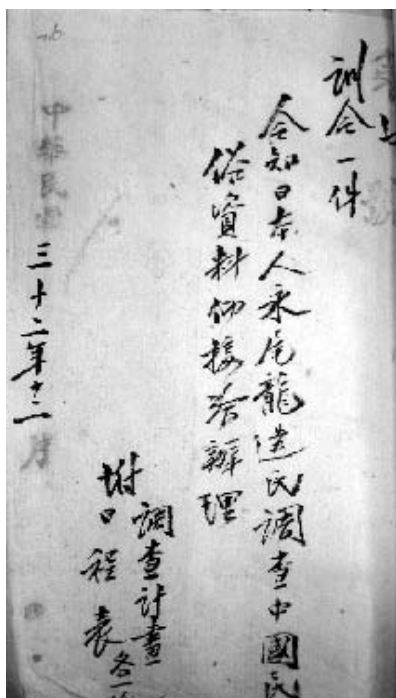 訓令一件
令知日本人永尾龍造氏調查中國民
俗資料仰接洽辦理
附調查計畫
日程表各一
中華民國三十二年十二月